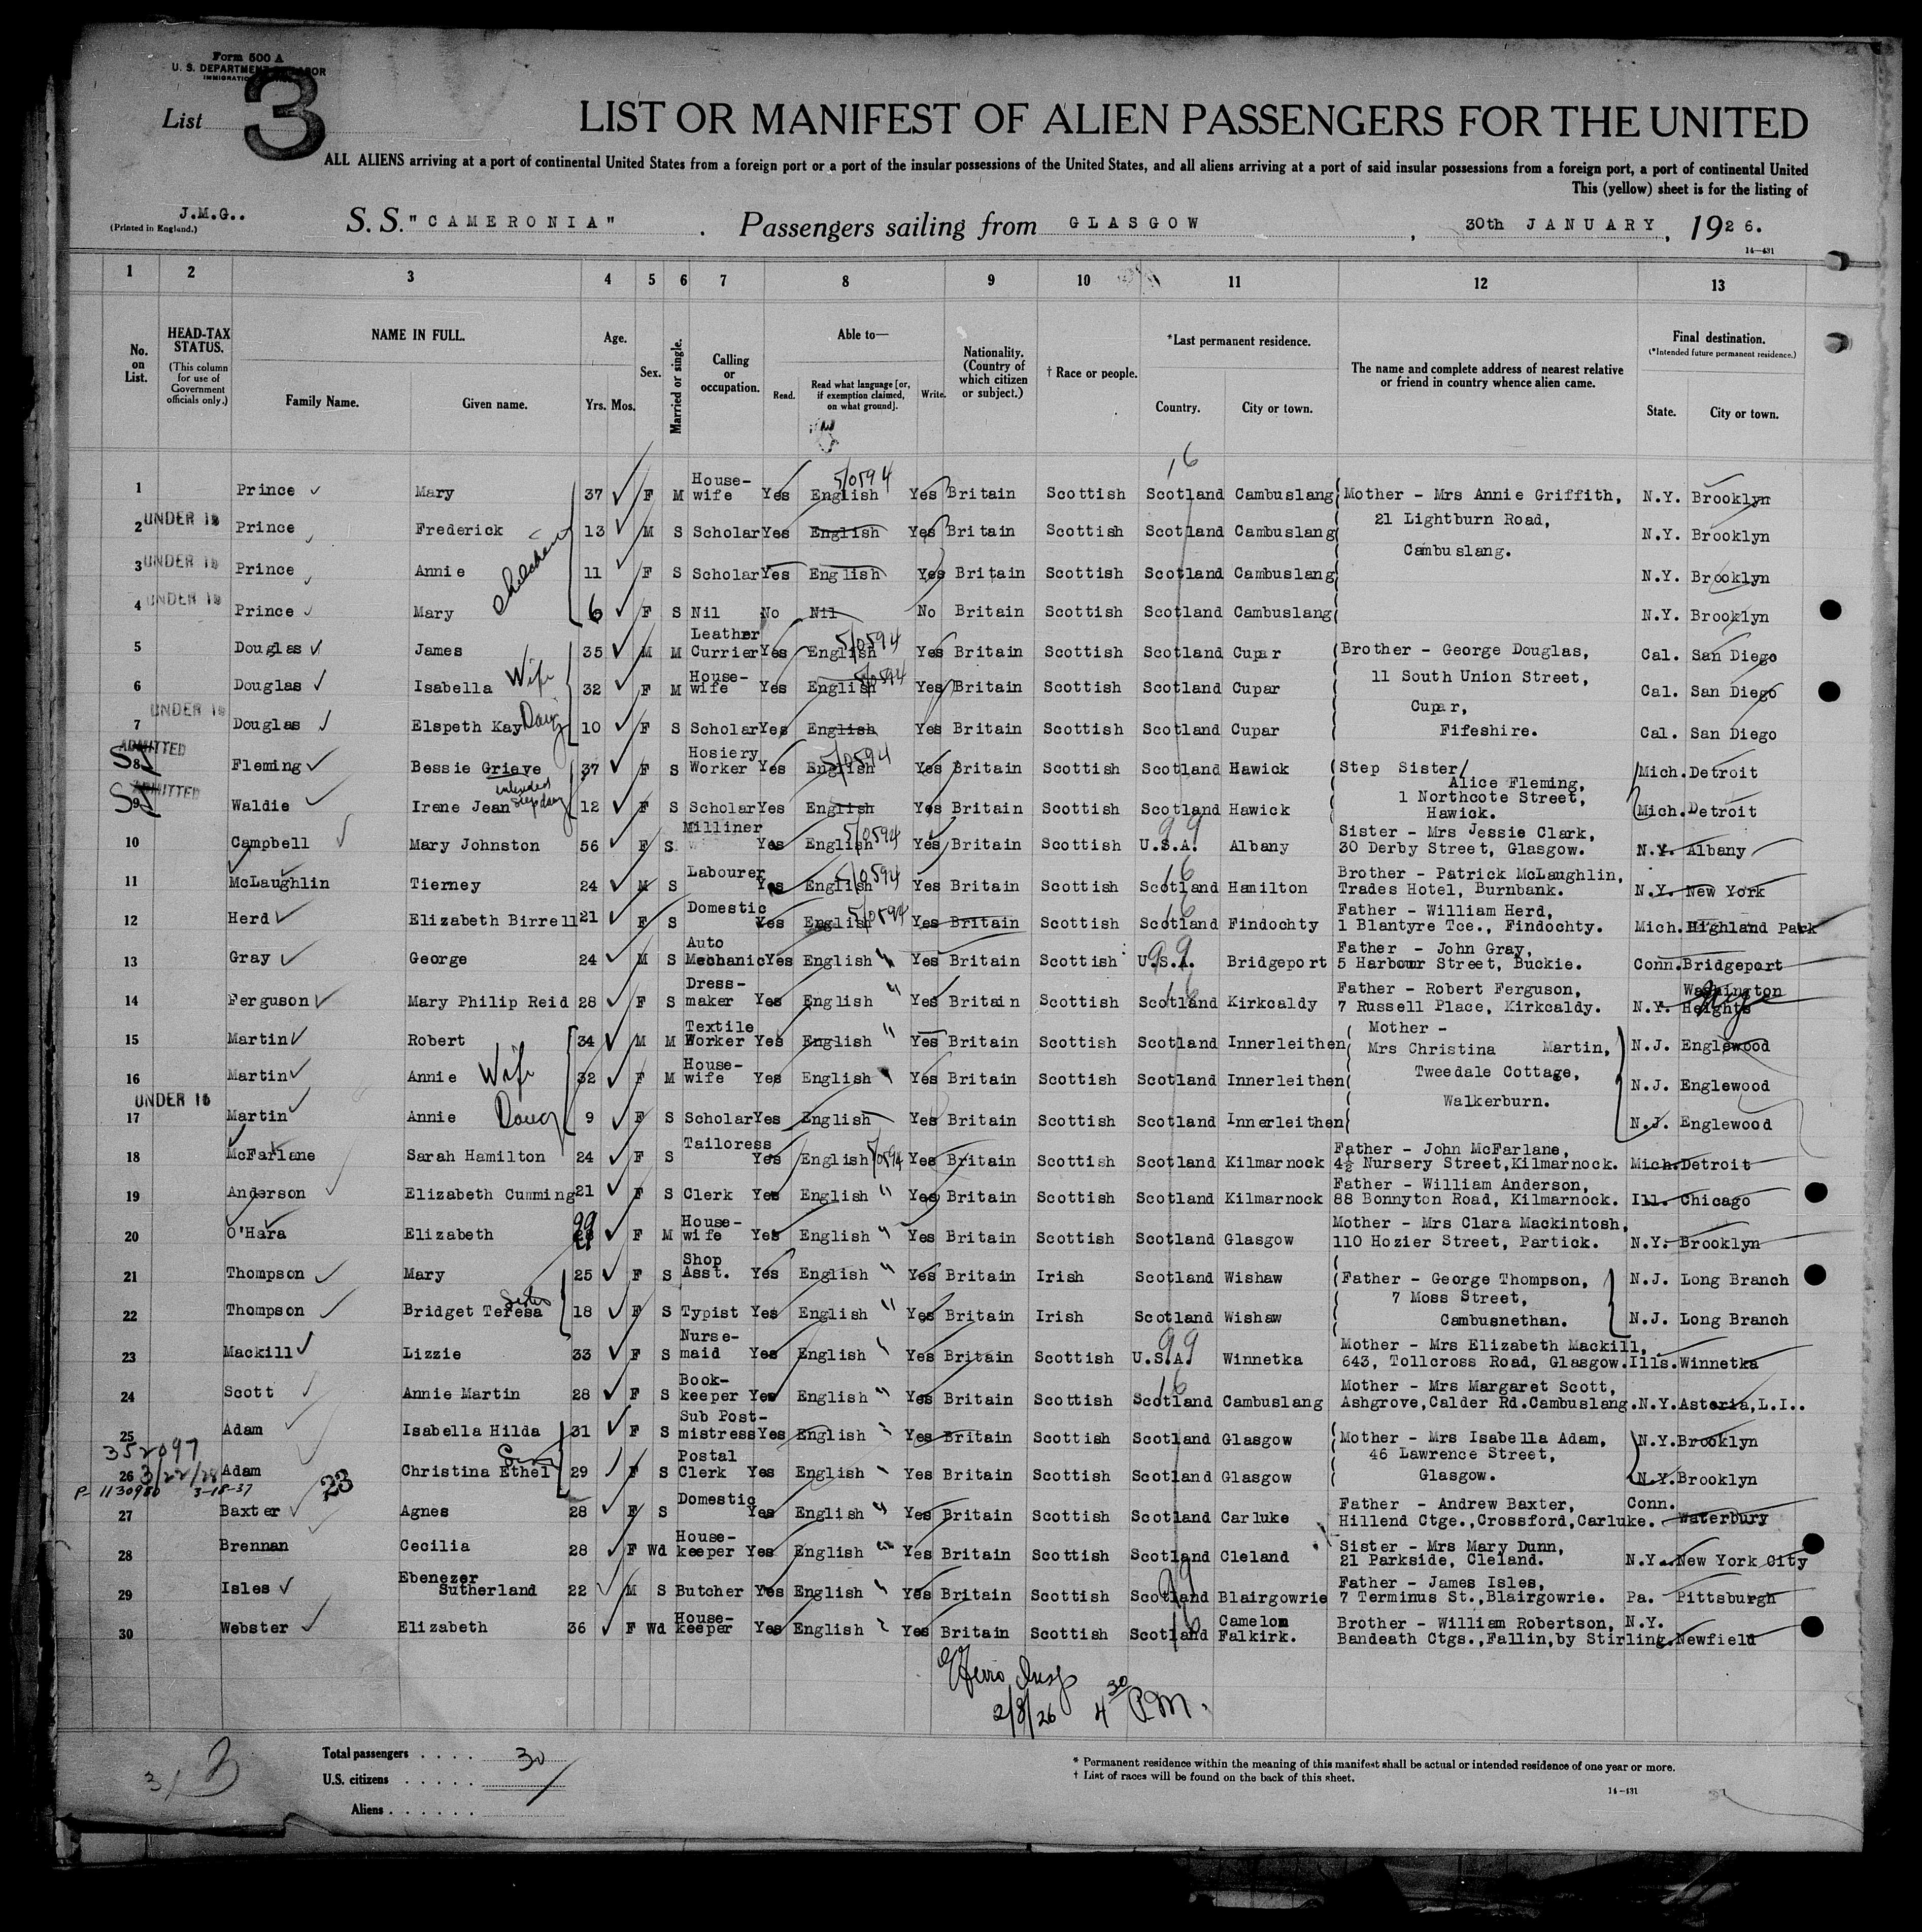 Form 500 A
U. S. DEPARTMENT OF LABOR
IMMIGRATION
List 3
LIST OR MANIFEST OF ALIEN PASSENGERS FOR THE UNITED
ALL ALIENS arriving at a port of continental United States from a foreign port or a port of the insular possessions of the United States, and all aliens arriving at a port of said insular possessions from a foreign port, a port of continental United
This (yellow) sheet is for the listing of
J.M.G..
(Printed in England.)
S. S. "CAMERONIA" . Passengers sailing from GLASGOW , 30th JANUARY, 1926.
14—431
1 2 3 4 5 6 7 8 9 10 11 12 13
No. on List.
HEAD-TAX STATUS.
(This column for use of Government officials only.)
NAME IN FULL.
Family Name. Given name.
Age.
Yrs. Mos.
Sex.
Married or single.
Calling or occupation.
Able to—
Read. Read what language [or, if exemption claimed, on what ground]. Write.
Nationality. (Country of which citizen or subject.)
† Race or people.
*Last permanent residence.
Country. City or town.
The name and complete address of nearest relative or friend in country whence alien came.
Final destination.
(*Intended future permanent residence.)
State. City or town.
1 Prince Mary 37 F M House-wife Yes English 5/0594 Yes Britain Scottish Scotland 16 Cambuslang Mother - Mrs Annie Griffith, N.Y. Brooklyn
2 UNDER 16 Prince Frederick 13 M S Scholar Yes English Yes Britain Scottish Scotland Cambuslang 21 Lightburn Road, N.Y. Brooklyn
3 UNDER 16 Prince Annie children 11 F S Scholar Yes English Yes Britain Scottish Scotland Cambuslang Cambuslang. N.Y. Brooklyn
4 UNDER 16 Prince Mary 6 F S Nil No Nil No Britain Scottish Scotland Cambuslang N.Y. Brooklyn
5 Douglas James 35 M M Leather Currier Yes English 5/0594 Yes Britain Scottish Scotland Cupar Brother - George Douglas, Cal. San Diego
6 Douglas Isabella Wife 32 F M House-wife Yes English 5/0594 Yes Britain Scottish Scotland Cupar 11 South Union Street, Cal. San Diego
7 UNDER 16 Douglas Elspeth Kay Daug 10 F S Scholar Yes English Yes Britain Scottish Scotland Cupar Cupar, Fifeshire. Cal. San Diego
8 ADMITTED SI Fleming Bessie Grieve 37 F S Hosiery Worker Yes English 5/0594 Yes Britain Scottish Scotland Hawick Step Sister/ Alice Fleming, Mich. Detroit
9 ADMITTED SI Waldie Irene Jean intended stepdaug 12 F S Scholar Yes English Yes Britain Scottish Scotland Hawick 1 Northcote Street, Hawick. Mich. Detroit
10 Campbell Mary Johnston 56 F S Milliner Yes English 5/0594 Yes Britain Scottish U.S.A. 99 Albany Sister - Mrs Jessie Clark, 30 Derby Street, Glasgow. N.Y. Albany
11 McLaughlin Tierney 24 M S Labourer Yes English 5/0594 Yes Britain Scottish Scotland 16 Hamilton Brother - Patrick McLaughlin, Trades Hotel, Burnbank. N.Y. New York
12 Herd Elizabeth Birrell 21 F S Domestic Yes English 5/0594 Yes Britain Scottish Scotland 16 Findochty Father - William Herd, 1 Blantyre Tce., Findochty. Mich. Highland Park
13 Gray George 24 M S Auto Mechanic Yes English " Yes Britain Scottish U.S.A. 99 Bridgeport Father - John Gray, 5 Harbour Street, Buckie. Conn. Bridgeport
14 Ferguson Mary Philip Reid 28 F S Dress-maker Yes English " Yes Britain Scottish Scotland 16 Kirkcaldy Father - Robert Ferguson, 7 Russell Place, Kirkcaldy. N.Y. Washington Heights
15 Martin Robert 34 M M Textile Worker Yes English " Yes Britain Scottish Scotland Innerleithen Mother - Mrs Christina Martin, N.J. Englewood
16 Martin Annie Wife 32 F M House-wife Yes English " Yes Britain Scottish Scotland Innerleithen Tweedale Cottage, N.J. Englewood
17 UNDER 16 Martin Annie Daug 9 F S Scholar Yes English Yes Britain Scottish Scotland Innerleithen Walkerburn. N.J. Englewood
18 McFarlane Sarah Hamilton 24 F S Tailoress Yes English 5/0594 Yes Britain Scottish Scotland Kilmarnock Father - John McFarlane, 4½ Nursery Street,Kilmarnock. Mich. Detroit
19 Anderson Elizabeth Cumming 21 F S Clerk Yes English " Yes Britain Scottish Scotland Kilmarnock Father - William Anderson, 88 Bonnyton Road, Kilmarnock. Ill. Chicago
20 O'Hara Elizabeth 29 F M House-wife Yes English " Yes Britain Scottish Scotland Glasgow Mother - Mrs Clara Mackintosh, 110 Hozier Street, Partick. N.Y. Brooklyn
21 Thompson Mary 25 F S Shop Asst. Yes English " Yes Britain Irish Scotland Wishaw Father - George Thompson, N.J. Long Branch
22 Thompson Bridget Teresa Sister 18 F S Typist Yes English " Yes Britain Irish Scotland Wishaw 7 Moss Street, Cambusnethan. N.J. Long Branch
23 Mackill Lizzie 33 F S Nurse-maid Yes English " Yes Britain Scottish U.S.A. 99 Winnetka Mother - Mrs Elizabeth Mackill, 643, Tollcross Road, Glasgow. Ills. Winnetka
24 Scott Annie Martin 28 F S Book-keeper Yes English " Yes Britain Scottish Scotland 16 Cambuslang Mother - Mrs Margaret Scott, Ashgrove,Calder Rd.Cambuslang. N.Y. Astoria,L.I..
25 Adam Isabella Hilda 31 F S Sub Post-mistress Yes English " Yes Britain Scottish Scotland Glasgow Mother - Mrs Isabella Adam, 46 Lawrence Street, N.Y. Brooklyn
352097
26 3/22/28 Adam Christina Ethel Sister 29 F S Postal Clerk Yes English " Yes Britain Scottish Scotland Glasgow Glasgow. N.Y. Brooklyn
P- 1130980 3-18-37 23
27 Baxter Agnes 28 F S Domestic Yes English " Yes Britain Scottish Scotland Carluke Father - Andrew Baxter, Hillend Ctge.,Crossford,Carluke. Conn. Waterbury
28 Brennan Cecilia 28 F Wd House-keeper Yes English " Yes Britain Scottish Scotland Cleland Sister - Mrs Mary Dunn, 21 Parkside, Cleland. N.Y. New York City
29 Isles Ebenezer Sutherland 22 M S Butcher Yes English " Yes Britain Scottish Scotland 99 Blairgowrie Father - James Isles, 7 Terminus St.,Blairgowrie. Pa. Pittsburgh
30 Webster Elizabeth 36 F Wd House-keeper Yes English " Yes Britain Scottish Scotland 16 Camelon Falkirk. Brother - William Robertson, Bandeath Ctgs.,Fallin,by Stirling. N.Y. Newfield
2/8/26 4 30 P.M.
Total passengers . . . . 30
U.S. citizens . . . . . .
Aliens . . . . . .
* Permanent residence within the meaning of this manifest shall be actual or intended residence of one year or more.
† List of races will be found on the back of this sheet.
14—431